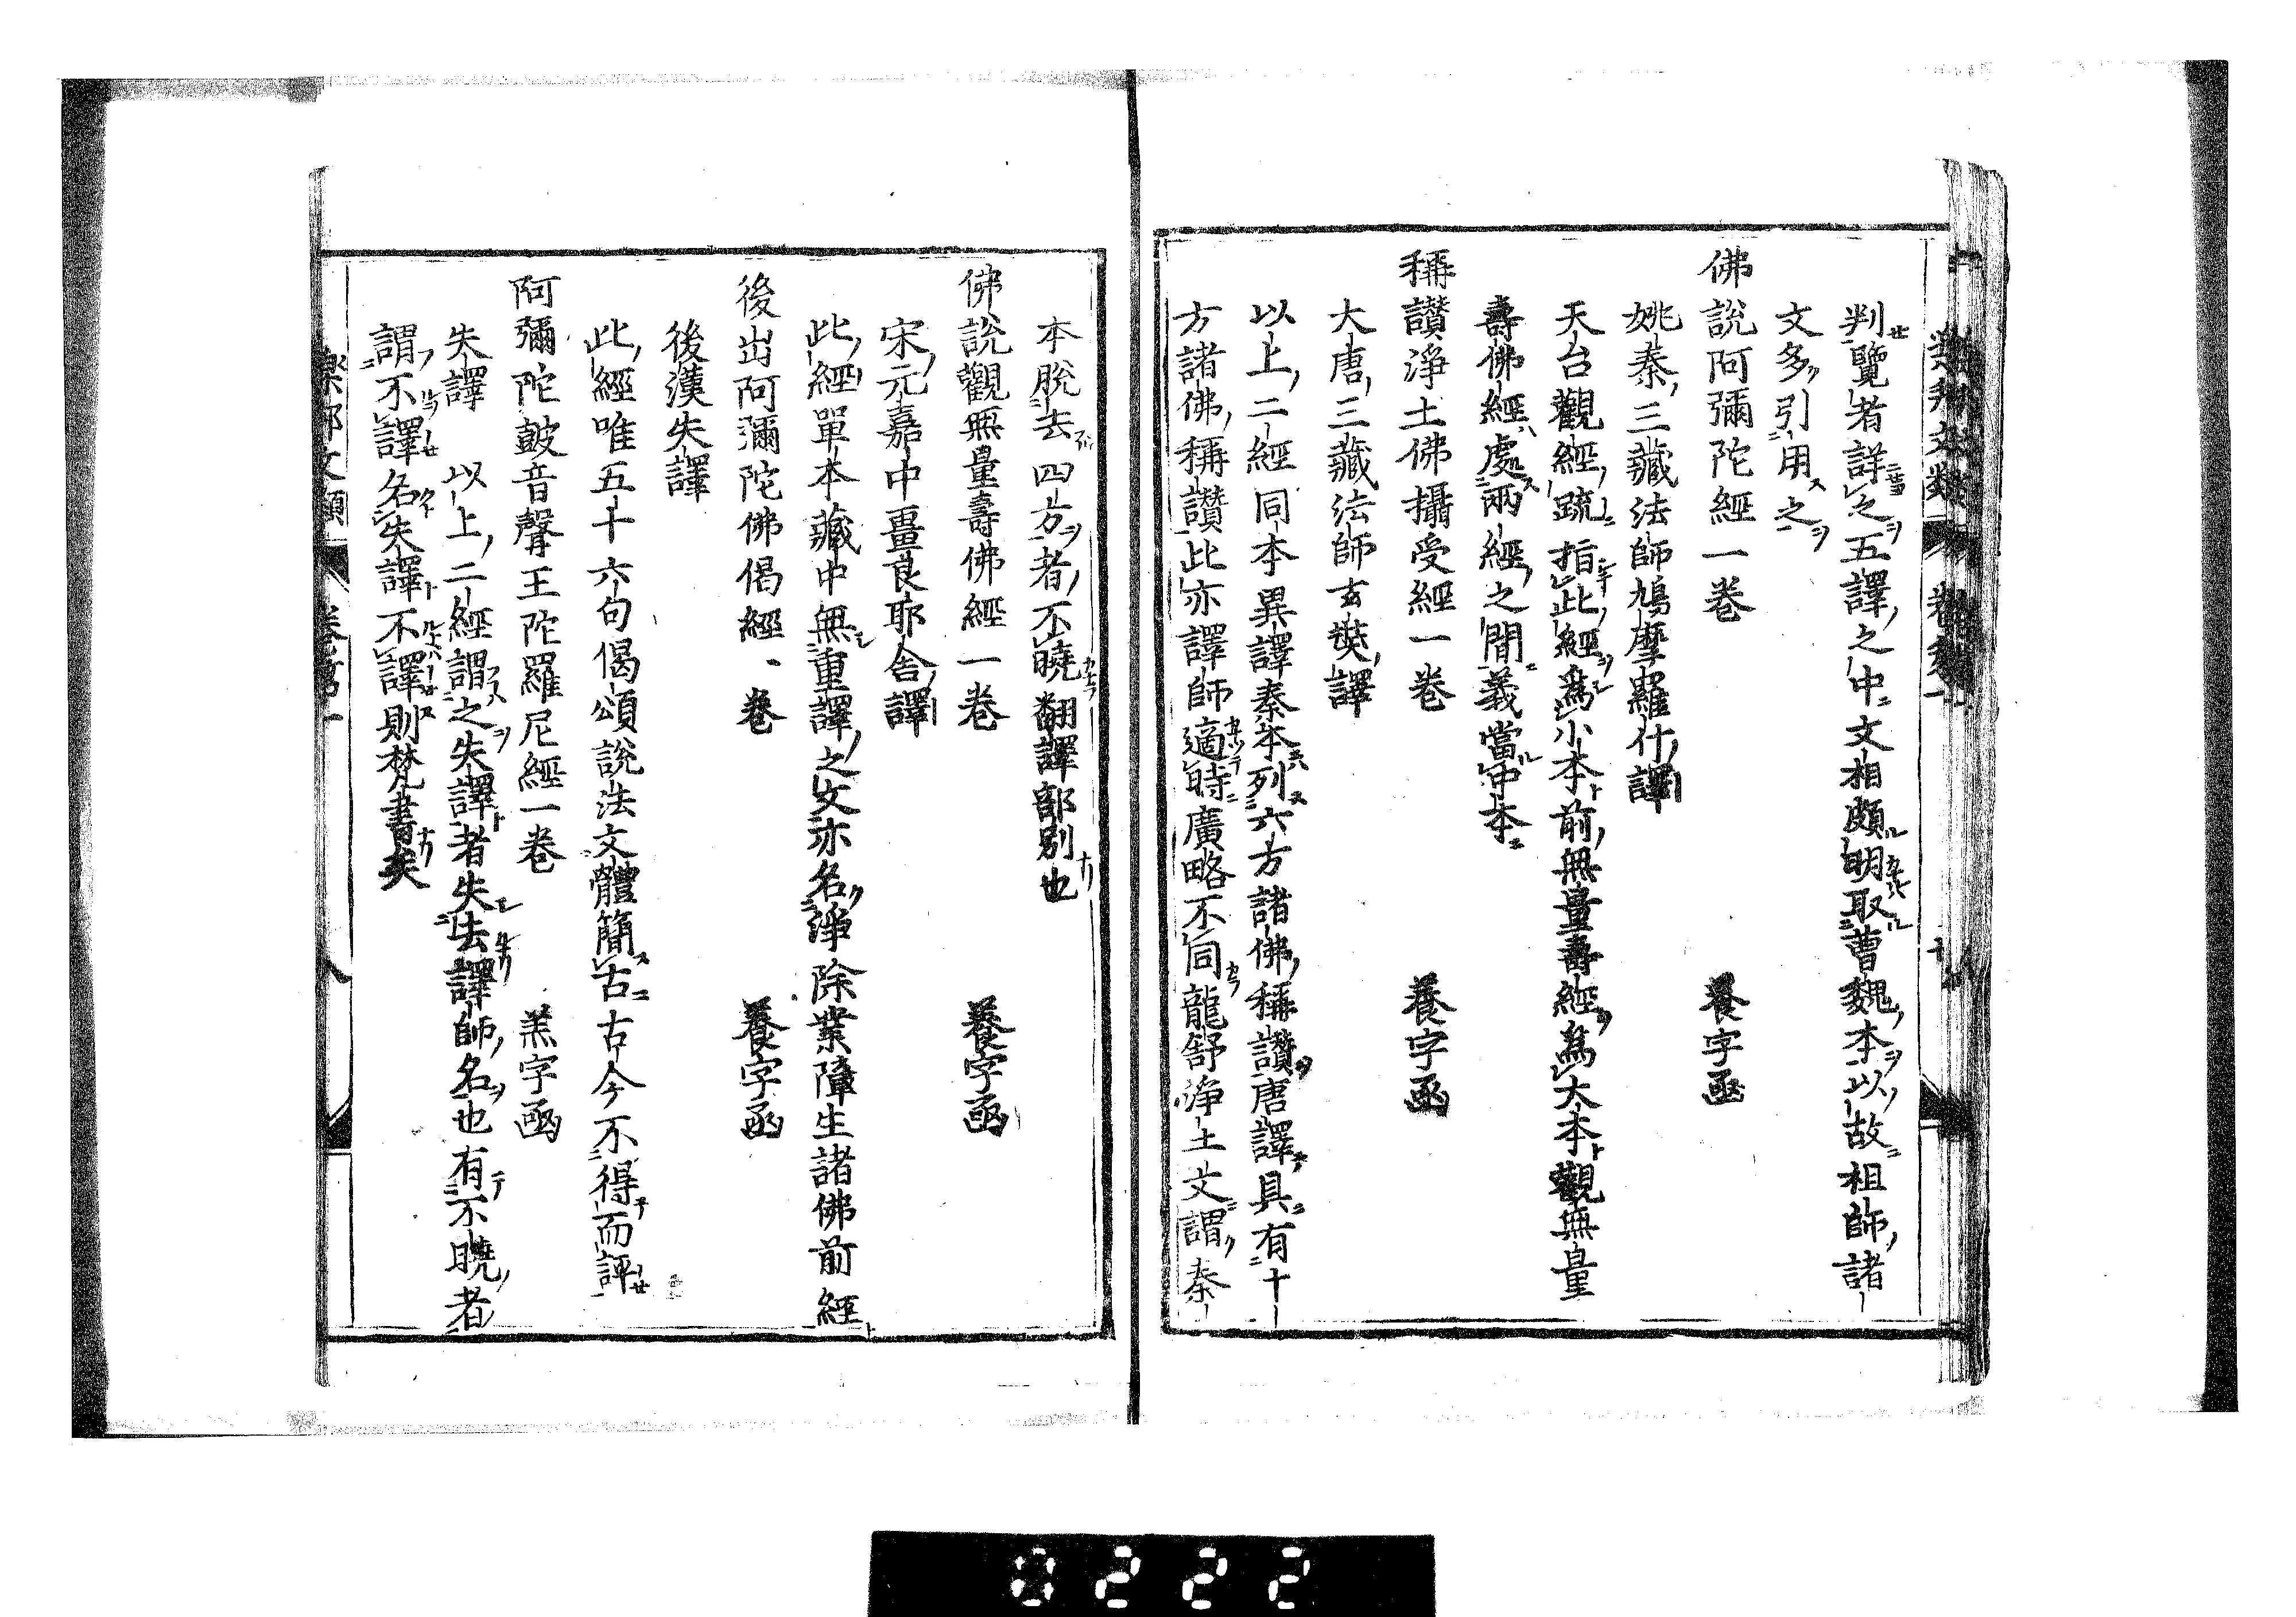 判覽者詳之五譯之中文相頗明取曹魏本以故祖師諸
文多引用之
佛說阿彌陀經一卷 養字函
姚秦三藏法師鳩摩羅什譯
天台觀經疏指此經爲小本前無量壽經爲大本觀無量
壽佛經處兩經之間義當中本
稱讃淨土佛攝受經一卷 養字函
大唐三藏法師玄奘譯
以上二經同本異譯秦本列六方諸佛稱讃唐譯具有十
方諸佛稱讃此亦譯師適時廣略不同龍舒淨土文謂秦
本脫去四方者不曉翻譯部別也
佛說觀無量壽佛經一卷 養字函
宋元嘉中畺良耶舍譯
此經單本藏中無重譯之文亦名淨除業障生諸佛前經
後出阿彌陀佛偈經一卷 養字函
後漢失譯
此經唯五十六句偈頌說法文體簡古古今不得而評
阿彌陀鼓音聲王陀羅尼經一卷 羔字函
失譯 以上二經謂之失譯者失去譯師名也有不曉者
謂不譯名失譯不譯則梵書矣
樂邦文類 卷第一 八